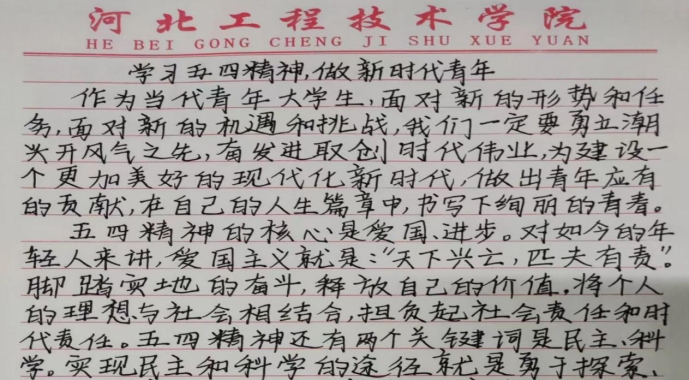 河北工程技术学院
HE BEI GONG CHENG JI SHU XUE YUAN
学习五四精神,做新时代青年
作为当代青年大学生,面对新的形势和任
务,面对新的机遇和挑战,我们一定要勇立潮
头开风气之先,奋发进取创时代伟业,为建设一
个更加美好的现代化新时代,做出青年应有
的贡献,在自己的人生篇章中,书写下绚丽的青春。
五四精神的核心是爱国、进步。对如今的年
轻人来讲,爱国主义就是:“天下兴亡,匹夫有责”。
脚踏实地的奋斗,释放自己的价值,将个人
的理想与社会相结合,担负起社会责任和时
代责任。五四精神还有两个关键词是民主、科
学。实现民主和科学的途径就是勇于探索、